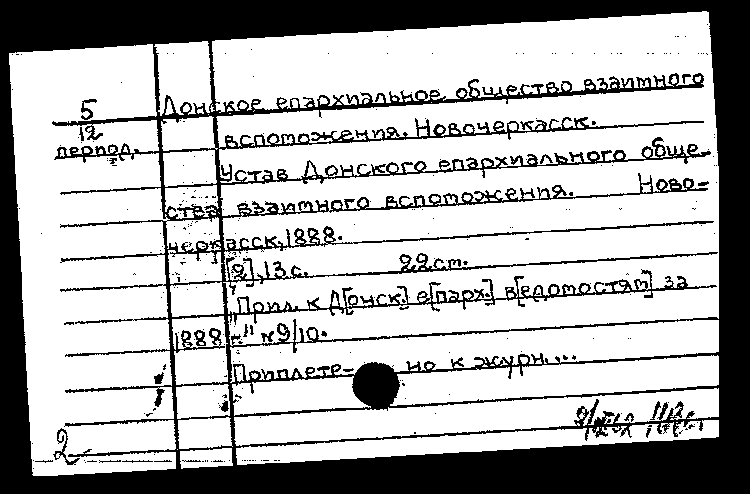 5 Донское епархиальное общество взаимного
12
период. вспоможения. Новочеркасск.
Устав Донского епархиального обще-
ства взаимного вспоможения. Ново-
черкасск, 1888.
[2], 13 с. 22 см.
"Прил. к Д[онск.] е[парх.] в[едомостям] за
1888 г." № 9/10.
Приплете- но к журн....
2